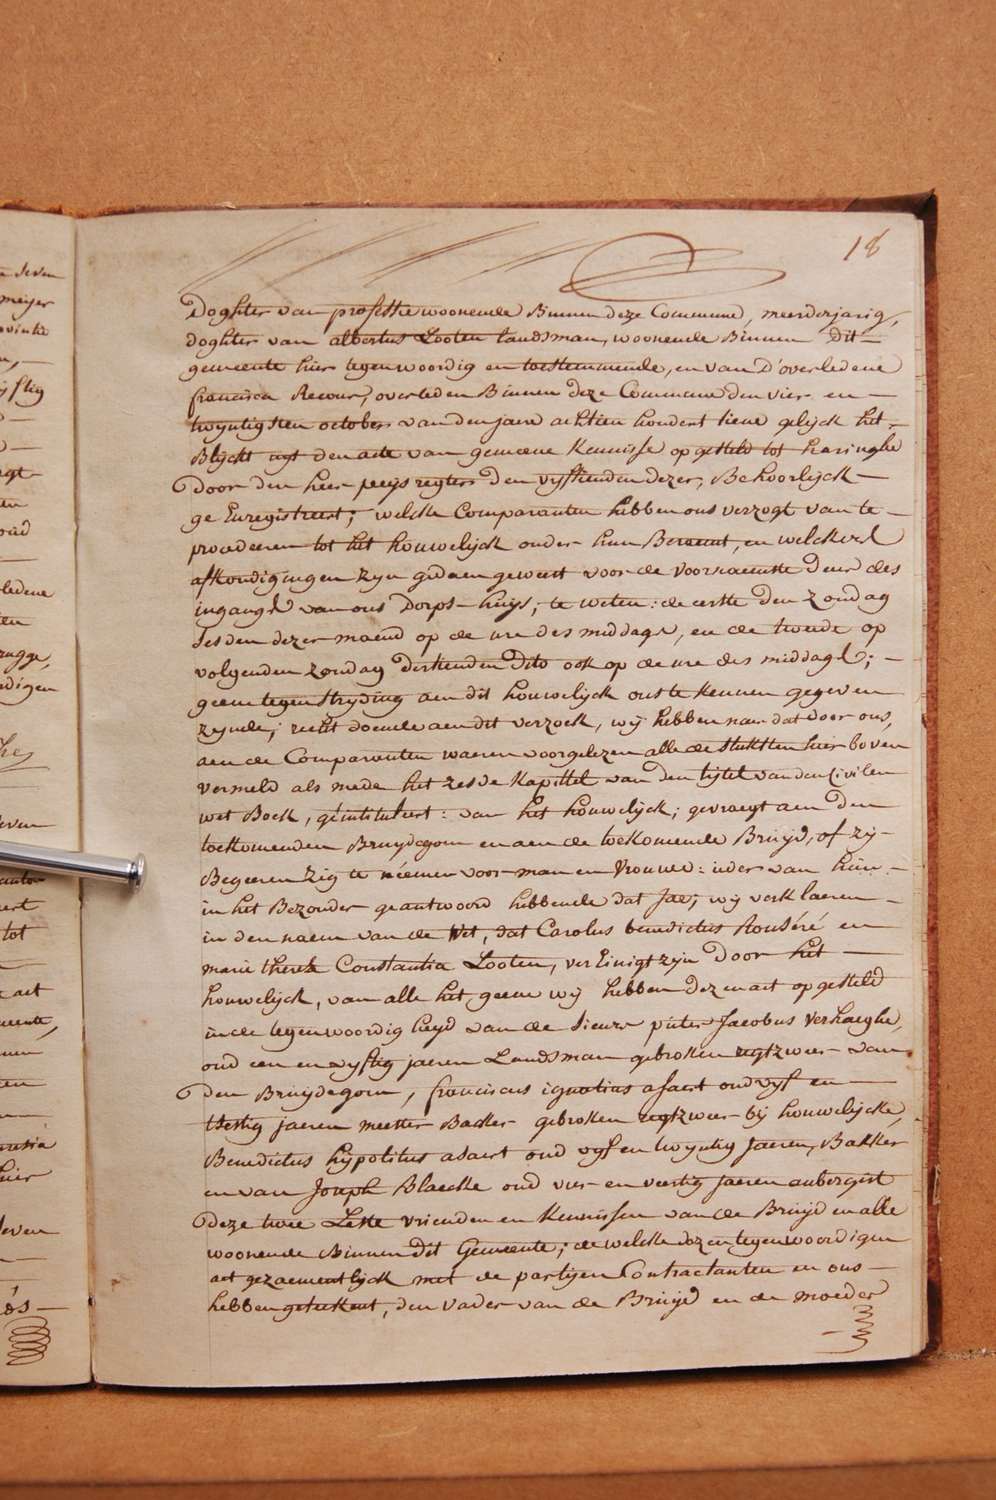 18
doghter van professie woonende Binnen deze Commune, meerderjarig,
doghter van albertus Looten landsman, woonende Binnen dit
gemeente hier tegenwoordig en toestemmende, en van D'overledene
francisca Recour, overleden Binnen deze Commune den vier en
twyntigsten october van den jaere achtien hondert tiene gelijck het
Blijckt uyt den acte van gemeene Kennisse opgesteld tot haringhe
door den heer peijs regter den vyfthienden dezer, Behoorlijck
ge Enregistreert; welcke Comparanten hebben ons verzogt van te
procedeeren tot het houwelijck onder hun Beraemt, en welckers
afkondigingen zijn gedaen geweest voor de voornaemste deur des
ingangs van ons Dorps-huijs; te weten: de eerste den zondag
sesden dezer maend op de ure des middags, en de tweede op
volgenden zondag derthienden dito ook op de ure des middags;
geene tegenstryding aen dit houwelijck ons te kennen gegeven
zynde; recht doende aen dit verzoek, wij hebben naer dat door ons,
aen de Comparanten waeren voorgelezen alle de stukken hier boven
vermeld als mede het zesde Kapittel van den tijtel van den Civilen
wet Boek, geintituleert: van het houwelijck; gevraegt aen den
toekomenden Bruydegom en aen de toekomende Bruijd, of zij
Begeeren zig te niemen voor man en vrouwe: ieder van hun
in het Bezonder geantwoord hebbende dat Jae; wij verklaeren
in den naem van de Wet, dat Carolus benedictus Rouséré en
marie therese Constantia Looten, verEinigt zijn door het
houwelijck, van alle het geene wij hebben dezen act opgesteld
in de tegenwoordigheyd van de sieurs pieter Jacobus verhaeghe,
oud een en vyftig jaeren Landsman gebroken regtzweer van
den Bruijdegom, franciscus ignatius asaert oud vyf en
dertig jaeren meester Backer gebroken regtzweer bij houwelijcke,
Benedictus hijpolitus asaert oud vyf en twyntig jaeren, Bakker
en van Joseph Blaecke oud vier en veertig jaeren aubergist
deze twee Leste vrienden en Kennissen van de Bruijd en alle
woonende Binnen dit Gemeente; de welcke dezen tegenwoordigen
act gezaementlijck met de partijen Contractanten en ons
hebben geteekent, den vader van de Bruijd en de moeder